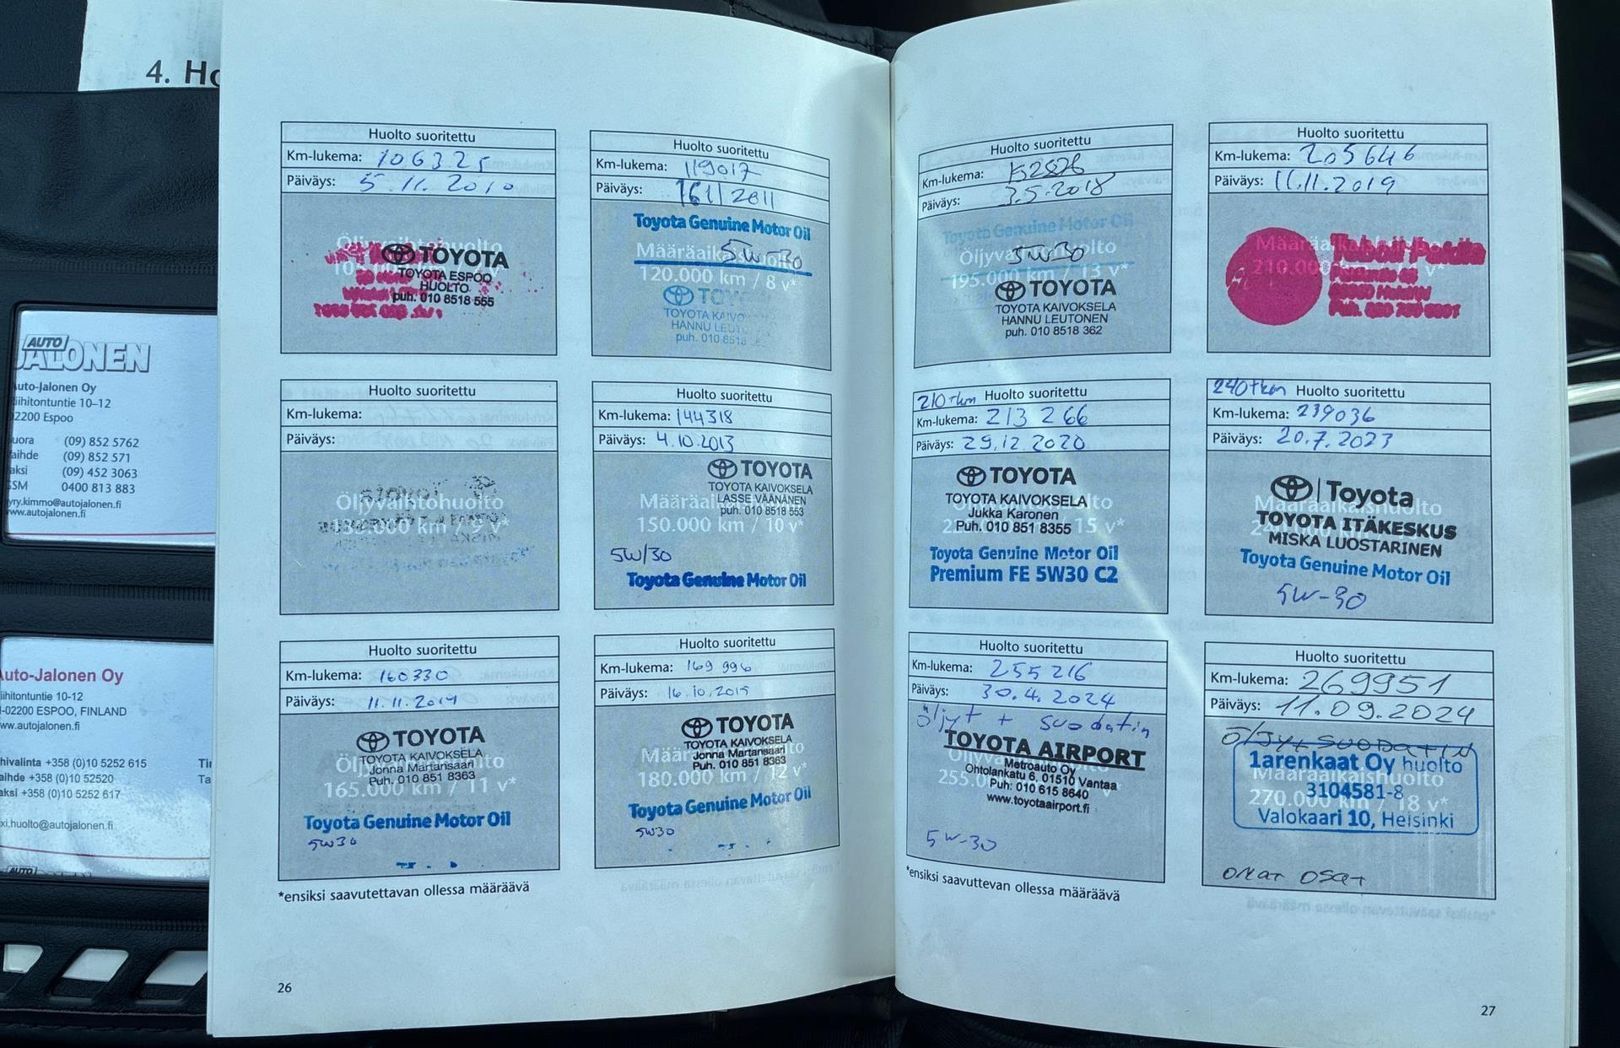 4. Ho
AUTO
JALONEN
Auto-Jalonen Oy
iihitontuntie 10–12
02200 Espoo
uora (09) 852 5762
aihde (09) 852 571
aksi (09) 452 3063
GSM 0400 813 883
yry.kimmo@autojalonen.fi
www.autojalonen.fi
Auto-Jalonen Oy
iihitontuntie 10-12
I-02200 ESPOO, FINLAND
ww.autojalonen.fi
hivalinta +358 (0)10 5252 615
aihde +358 (0)10 52520
aksi +358 (0)10 5252 617
Tir
Ta
xi.huolto@autojalonen.fi
AUTO
Huolto suoritettu
Km-lukema: 106325
Päiväys: 5.11.2010
Öljyvaihtohuolto
TOYOTA
TOYOTA ESPOO
HUOLTO
puh. 010 8518 555
Huolto suoritettu
Km-lukema: 119017
Päiväys: 16 11 2011
Toyota Genuine Motor Oil
Määräaikaishuolto
5W 30
120.000 km / 8 v*
TOYOTA
TOYOTA KAIVO
HANNU LEUT
puh. 010 8518
Huolto suoritettu
Km-lukema:
Päiväys:
Öljyvaihtohuolto
135.000 km / 9 v*
Huolto suoritettu
Km-lukema: 144318
Päiväys: 4.10.2013
TOYOTA
TOYOTA KAIVOKSELA
LASSE VÄÄNÄNEN
puh. 010 8518 553
Määräai
150.000 km / 10 v*
5W/30
Toyota Genuine Motor Oil
Huolto suoritettu
Km-lukema: 160330
Päiväys: 11.11.2014
TOYOTA
TOYOTA KAIVOKSELA
Jonna Martansaari
Puh. 010 851 8363
165.000 km / 11 v*
Toyota Genuine Motor Oil
5W30
Huolto suoritettu
Km-lukema: 169 996
Päiväys: 16.10.2015
TOYOTA
TOYOTA KAIVOKSELA
Jonna Martansaari
Puh. 010 851 8363
180.000 km / 12 v*
Toyota Genuine Motor Oil
5W30
*ensiksi saavutettavan ollessa määräävä
26
Huolto suoritettu
Km-lukema:
Päiväys: 3.5.2018
Toyota Genuine Motor Oil
Öljyvaihtohuolto
5W30
195.000 km / 13 v*
TOYOTA
TOYOTA KAIVOKSELA
HANNU LEUTONEN
puh. 010 8518 362
Huolto suoritettu
Km-lukema: 205646
Päiväys: 11.11.2019
210.000
210 tkm Huolto suoritettu
Km-lukema: 213 266
Päiväys: 29.12.2020
TOYOTA
TOYOTA KAIVOKSELA
Jukka Karonen
Puh. 010 851 8355
15 v*
Toyota Genuine Motor Oil
Premium FE 5W30 C2
240 tkm Huolto suoritettu
Km-lukema: 239036
Päiväys: 20.7.2023
Toyota
TOYOTA ITÄKESKUS
MISKA LUOSTARINEN
Toyota Genuine Motor Oil
5W-30
Huolto suoritettu
Km-lukema: 255216
Päiväys: 30.4.2024
öljyt + suodatin
TOYOTA AIRPORT
Metroauto Oy
Ohtolankatu 6, 01510 Vantaa
Puh: 010 615 8640
www.toyotaairport.fi
255.0
5W-30
Huolto suoritettu
Km-lukema: 269951
Päiväys: 11.09.2024
ÖLJY+SUODATIN
1arenkaat Oy huolto
Määräaikaishuolto
3104581-8
270.000 km / 18 v*
Valokaari 10, Helsinki
OMAT OSAT
*ensiksi saavuttevan ollessa määräävä
27